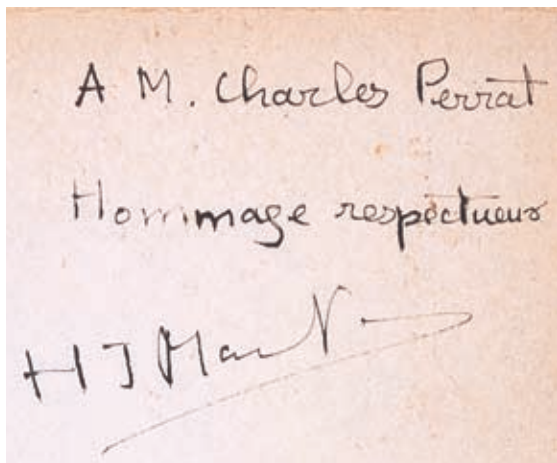 A M. Charles Perrat
Hommage respectueux
H J Martin